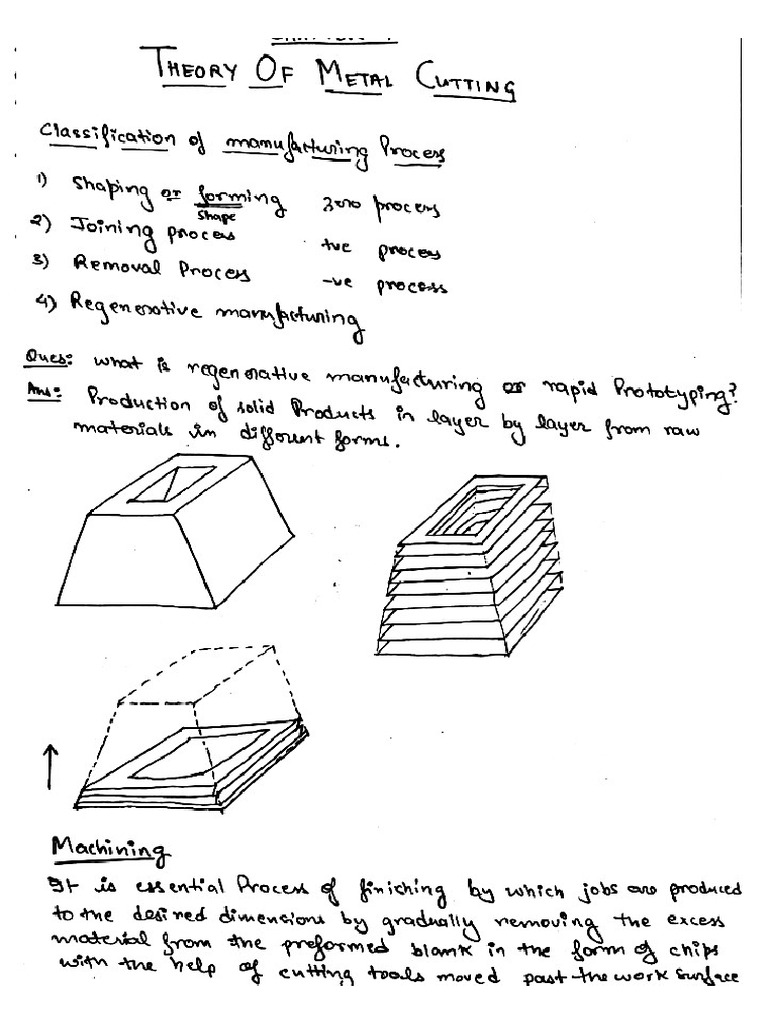 THEORY OF METAL CUTTING
Classification of manufacturing Process
1) Shaping or forming zero process
shape
2) Joining process +ve process
3) Removal Process -ve process
4) Regenerative manufacturing
Ques: what is regenerative manufacturing or rapid Prototyping?
Ans: Production of solid Products in layer by layer from raw
materials in different forms.
Machining
It is essential Process of finishing by which jobs are produced
to the desired dimensions by gradually removing the excess
material from the preformed blank in the form of chips
with the help of cutting tools moved past the work surface